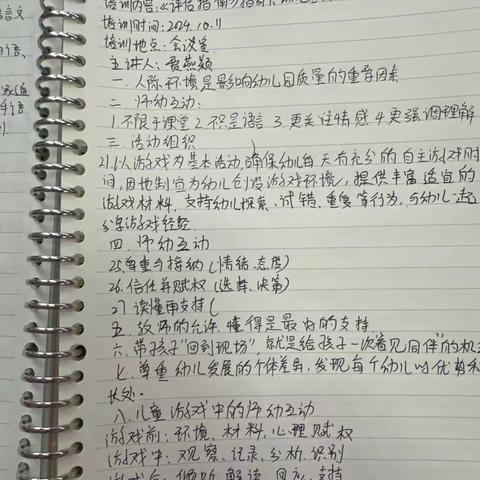 培训内容:《评估指南》指
培训时间:2024.10.11
培训地点:会议室
主讲人:贾燕颖
一.人际环境是影响幼儿园质量的重要因素
二.师幼互动:
1.不限于课堂 2.不只是语言 3.更关注情感 4.更强调理解
三.活动组织
21.以游戏为基本活动,确保幼儿每天有充分的自主游戏时
间,因地制宜为幼儿创设游戏环境,提供丰富适宜的
游戏材料,支持幼儿探索、试错、重复等行为,与幼儿一起
分享游戏经验.
四.师幼互动
25.尊重与接纳(情绪、态度)
26.信任并赋权(选择、决策)
27.读懂再支持(
五.教师的允许、懂得是最好的支持
六.带孩子“回到现场”,就是给孩子一次看见同伴”的机
七.尊重幼儿发展的个体差异,发现每个幼儿的优势和
长处.
八.儿童游戏中的师幼互动
游戏前:环境、材料、心理赋权
游戏中:观察、记录、分析、识别
游戏后:倾听、解读、回应、支持